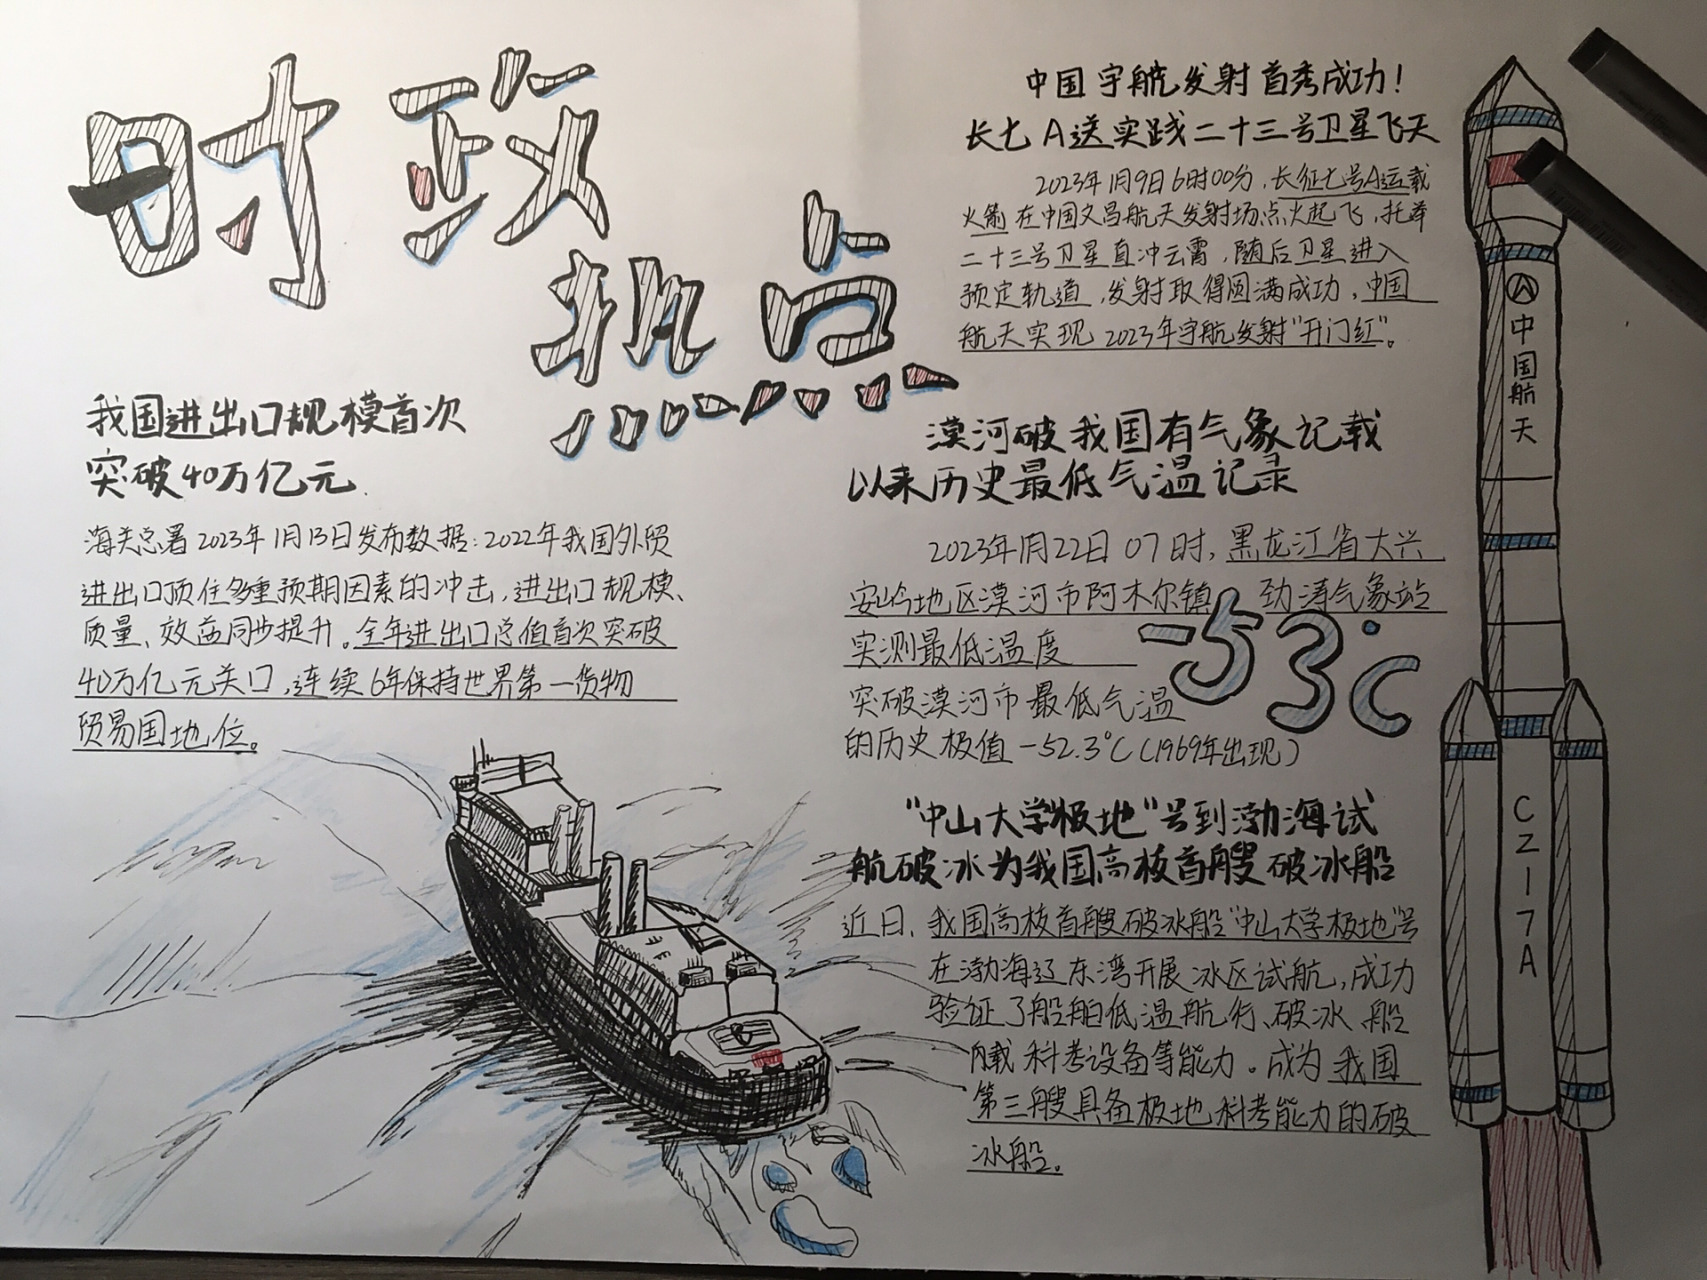 时政
热点
我国进出口规模首次
突破40万亿元.
海关总署2023年1月13日发布数据:2022年我国外贸
进出口顶住多重预期因素的冲击,进出口规模、
质量、效益同步提升。全年进出口总值首次突破
40万亿元关口,连续6年保持世界第一货物
贸易国地位。
中国宇航发射首秀成功!
长七A送实践二十三号卫星飞天
2023年1月9日6时00分,长征七号A运载
火箭在中国文昌航天发射场点火起飞,托举
二十三号卫星直冲云霄,随后卫星进入
预定轨道,发射取得圆满成功,中国
航天实现2023年宇航发射“开门红”。
漠河破我国有气象记载
以来历史最低气温记录
2023年1月22日07时,黑龙江省大兴
安岭地区漠河市阿木尔镇,劲涛气象站
实测最低温度 -53℃
突破漠河市最低气温
的历史极值-52.3℃(1969年出现)
“中山大学极地”号到渤海试
航破冰为我国高校首艘破冰船
近日,我国高校首艘破冰船“中山大学极地”号
在渤海辽东湾开展冰区试航,成功
验证了船舶低温航行、破冰、船
载科考设备等能力。成为我国
第三艘具备极地科考能力的破
冰船。
中国航天
CZ-7A